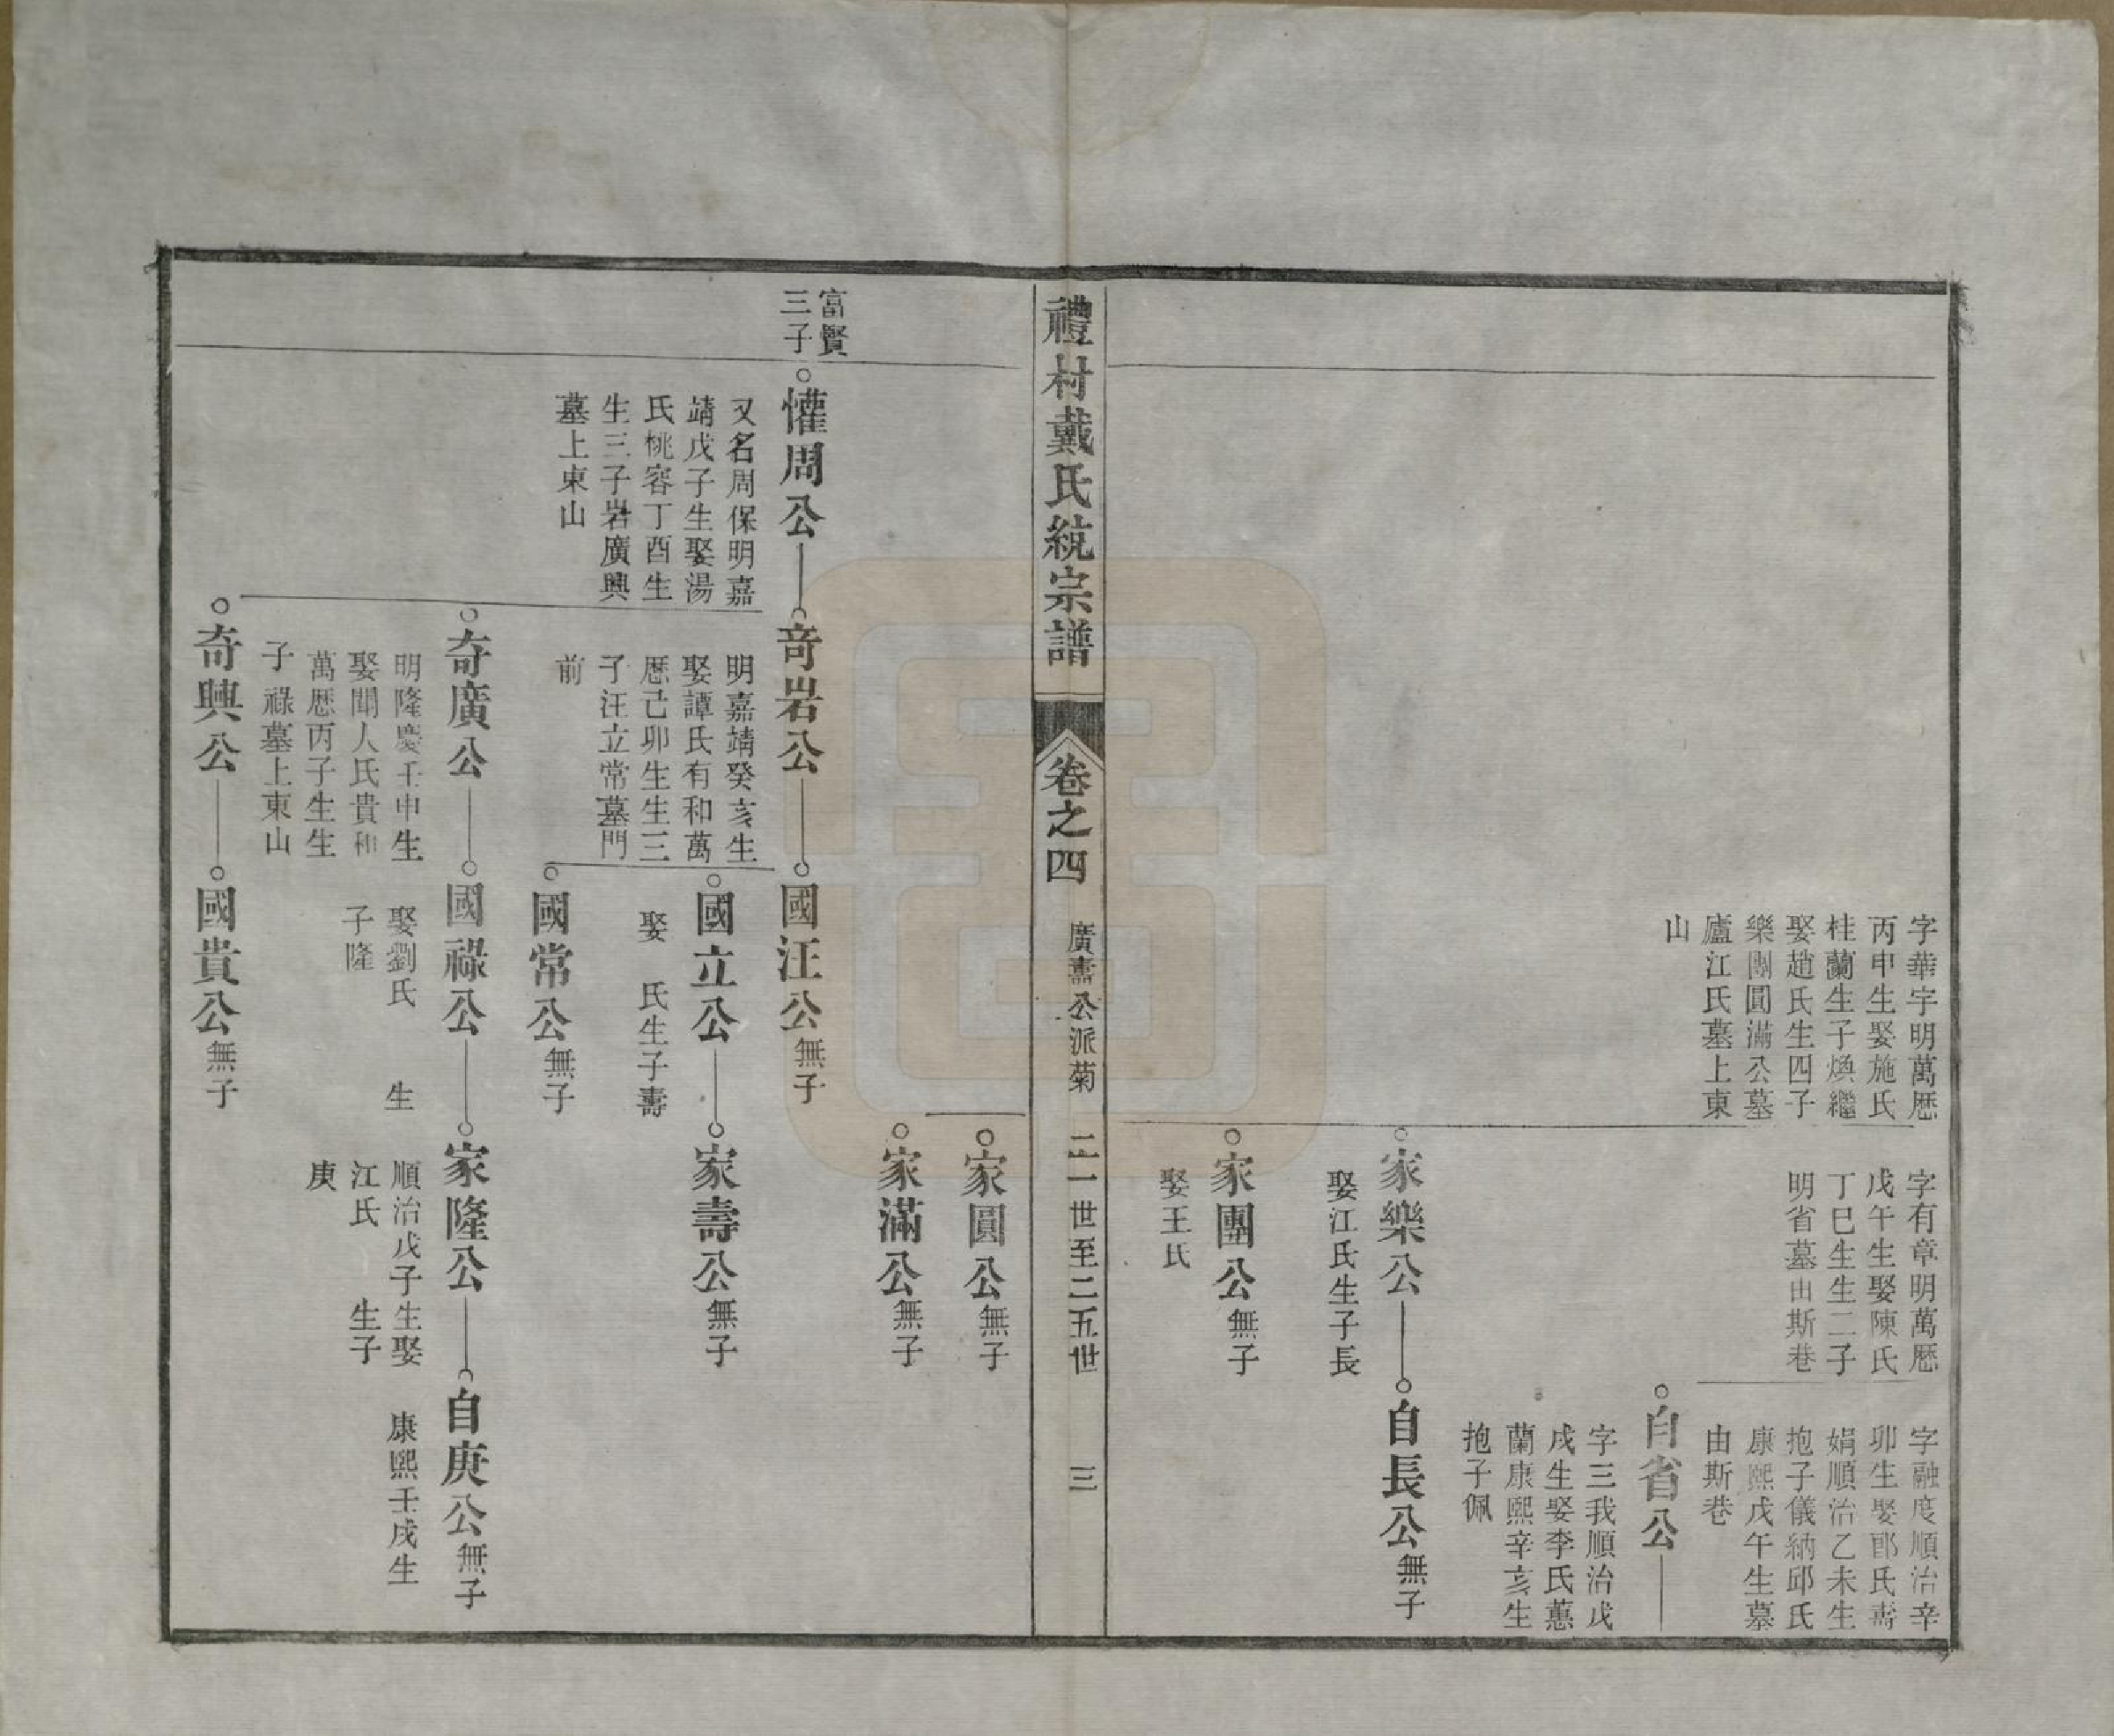 字華宇明萬厯
丙申生娶施氏
桂蘭生子煥繼
娶趙氏生四子
樂團圓滿公墓
廬江氏墓上東
山
字有章明萬厯
戊午生娶陳氏
丁巳生生二子
明省墓由斯巷
字融度順治辛
卯生娶郎氏壽
娟順治乙未生
抱子儀納邱氏
康熙戊午生墓
由斯巷
自省公
字三我順治戊
戌生娶李氏蕙
蘭康熙辛亥生
抱子佩
家樂公
娶江氏生子長
自長公無子
家團公無子
娶王氏
禮村戴氏統宗譜
卷之四
廣燾公派菊
二一世至二五世
三
家圓公無子
家滿公無子
富賢
三子
懽周公
又名周保明嘉
靖戊子生娶湯
氏桃容丁酉生
生三子岩廣興
墓上東山
奇岩公
明嘉靖癸亥生
娶譚氏有和萬
厯己卯生生三
子汪立常墓門
前
國汪公無子
國立公
娶　氏生子壽
家壽公無子
國常公無子
奇廣公
明隆慶壬申生
娶聞人氏貴和
萬厯丙子生生
子祿墓上東山
國祿公
娶劉氏　生
子隆
家隆公
順治戊子生娶
江氏　生子
庚
自庚公無子
康熙壬戌生
奇興公
國貴公無子